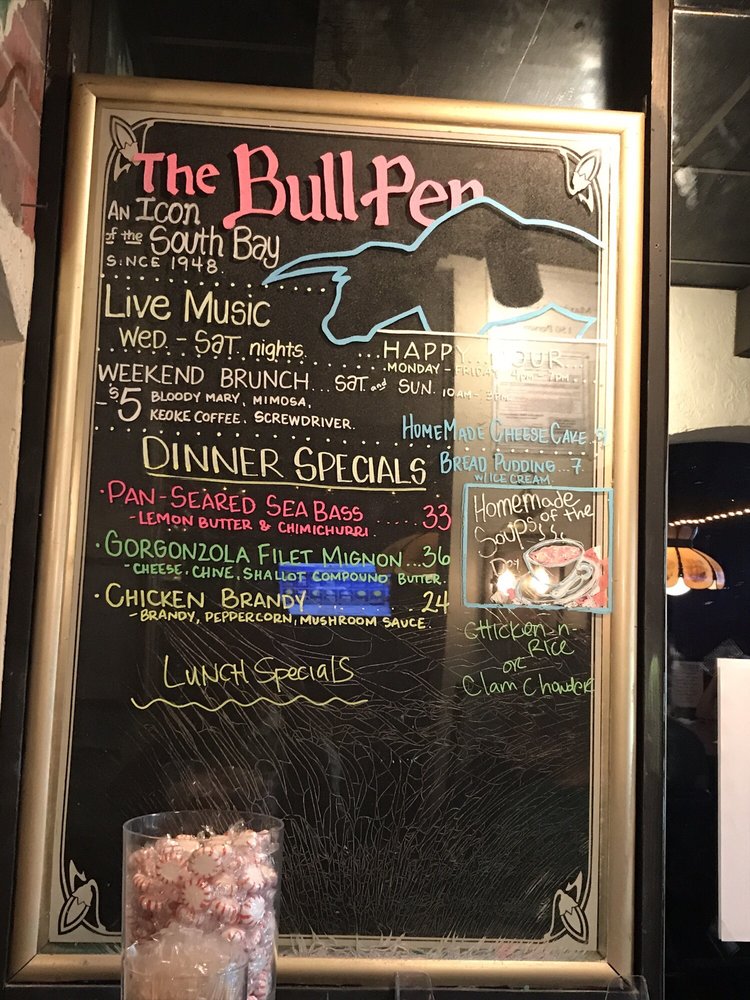 The Bull Pen
An Icon
of the South Bay
Since 1948.
Live Music
Wed. - Sat. nights.
...Happy Hour...
Monday - Friday 4pm - 7pm
Weekend Brunch... Sat. and Sun. 10am -
- $5 Bloody Mary, Mimosa,
Keoke Coffee, Screwdriver.
HomeMade Cheese Cake..
Bread Pudding...7
w/ Ice Cream.
Dinner Specials
·Pan-Seared Sea Bass ..... 33
- Lemon Butter & Chimichurri
·Gorgonzola Filet Mignon...36
- Cheese, Chive, Shallot Compound Butter.
·Chicken Brandy ..... 24
- Brandy, Peppercorn, Mushroom Sauce.
Homemade
Soups of the
Day
Chicken-n-
Rice
or
Clam Chowder
Lunch Specials